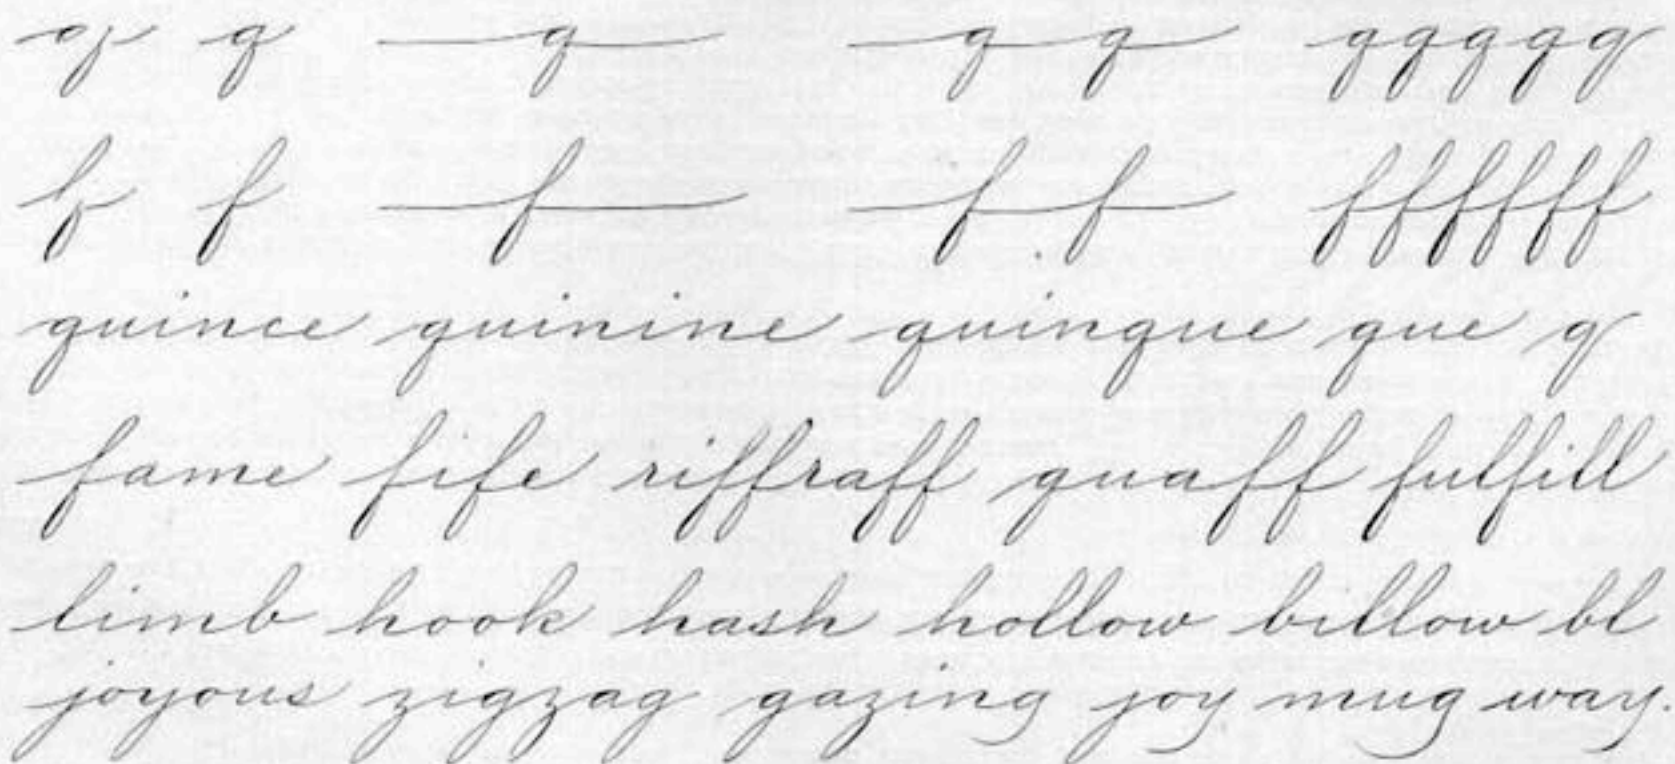 q q q q q q q q q q
f f f f f f f f f f f
quince quinine quinque que q
fame fife riffraff quaff fulfill
limb hook hash hollow billow bl
joyous zigzag gazing joy mug way.